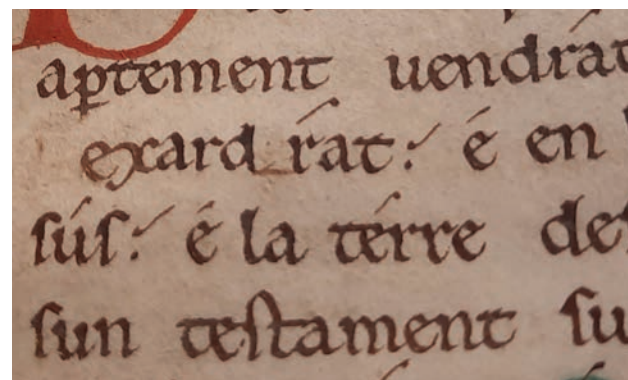 aptement uendrat
exardrat: é en
sús: é la térre des
sun testament su